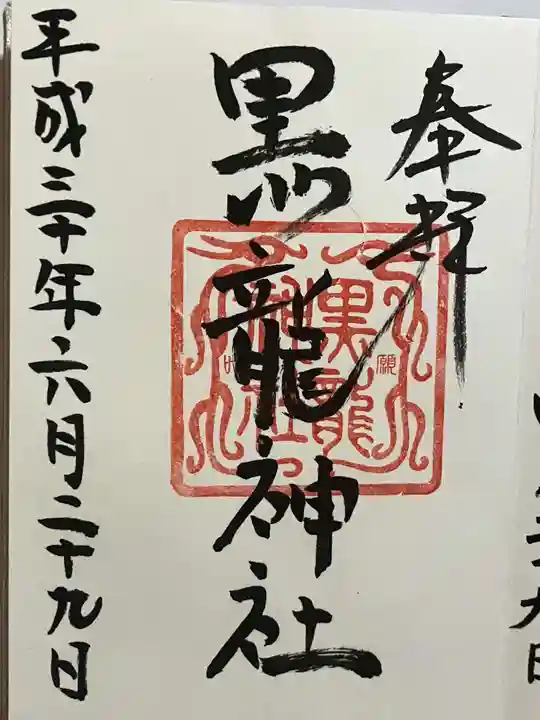 奉拝
黒龍神社
黒龍
神社
願
叶
平成三十年六月二十九日